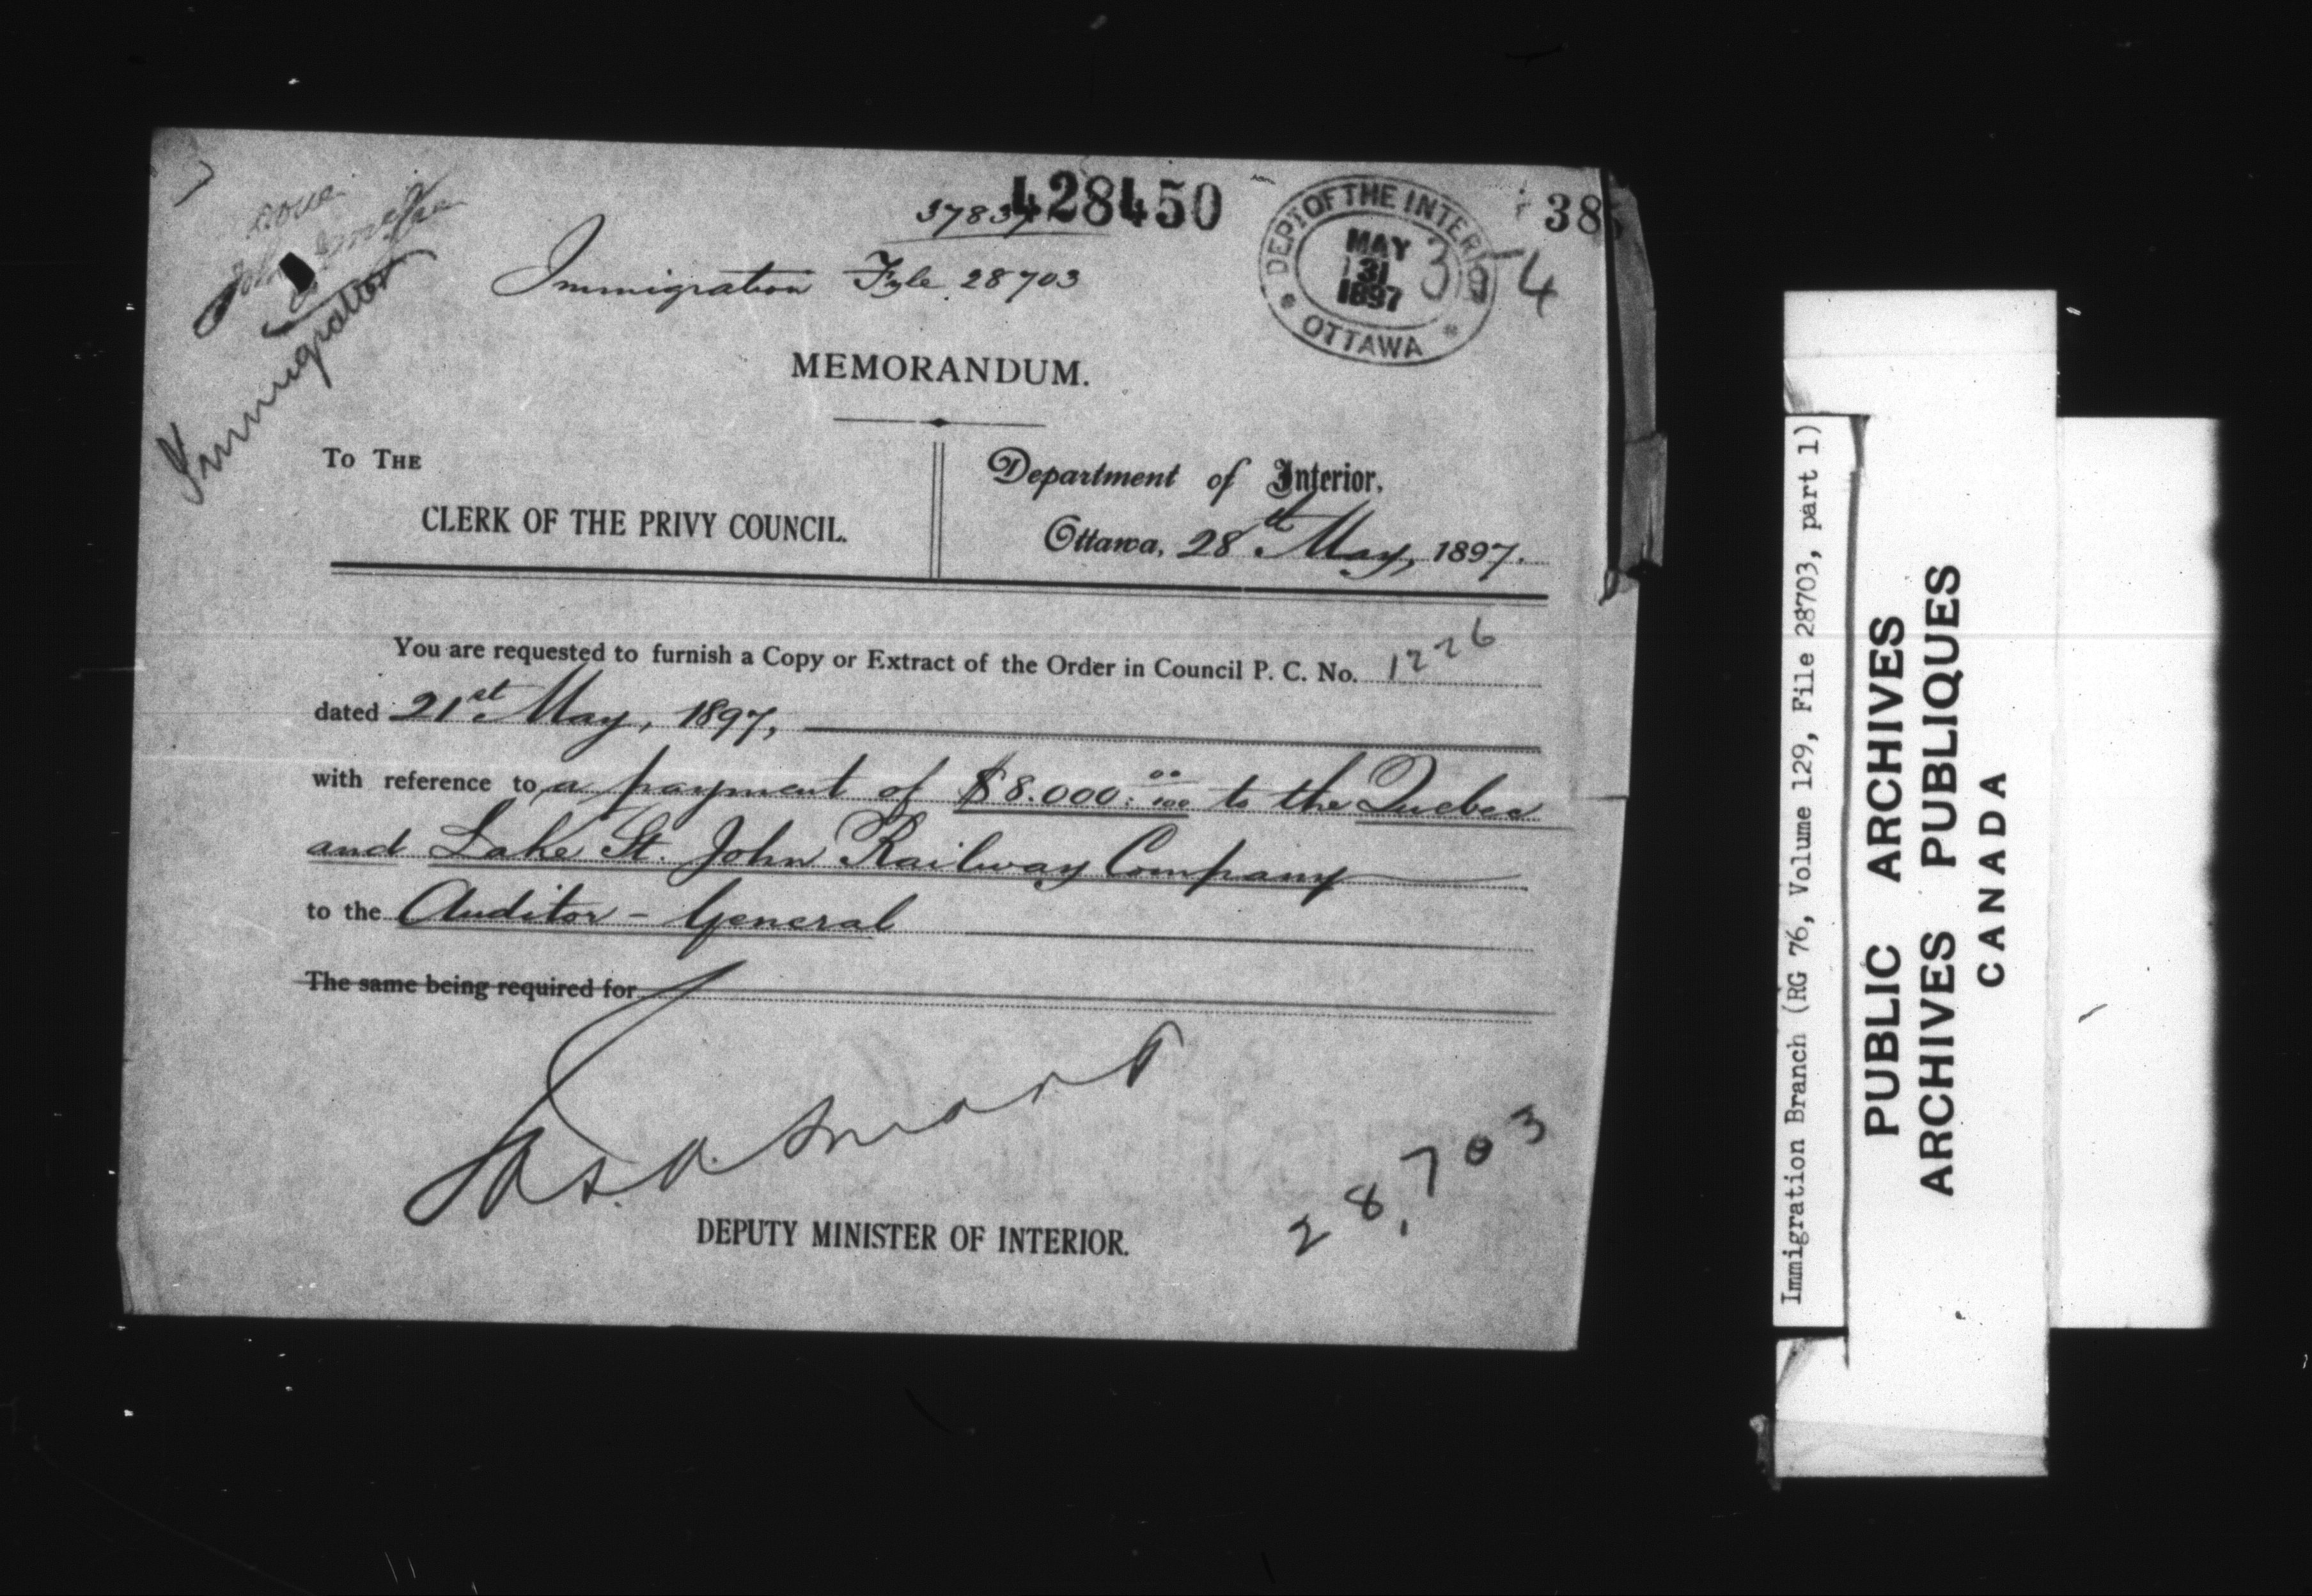 428450
37837
38
Immigration Fyle 28703
DEPT OF THE INTERIOR
MAY
31
1897
OTTAWA
Immigration
MEMORANDUM.
To The
CLERK OF THE PRIVY COUNCIL.
Department of Interior,
Ottawa, 28th May, 1897.
You are requested to furnish a Copy or Extract of the Order in Council P. C. No. 1226
dated 21st May, 1897,
with reference to a payment of $8.000: 00/100 to the Quebec
and Lake St. John Railway Company
to the Auditor-General
The same being required for
Jas. A. Smart
DEPUTY MINISTER OF INTERIOR.
28,703
Immigration Branch (RG 76, Volume 129, File 28703, part 1)
PUBLIC ARCHIVES
ARCHIVES PUBLIQUES
CANADA